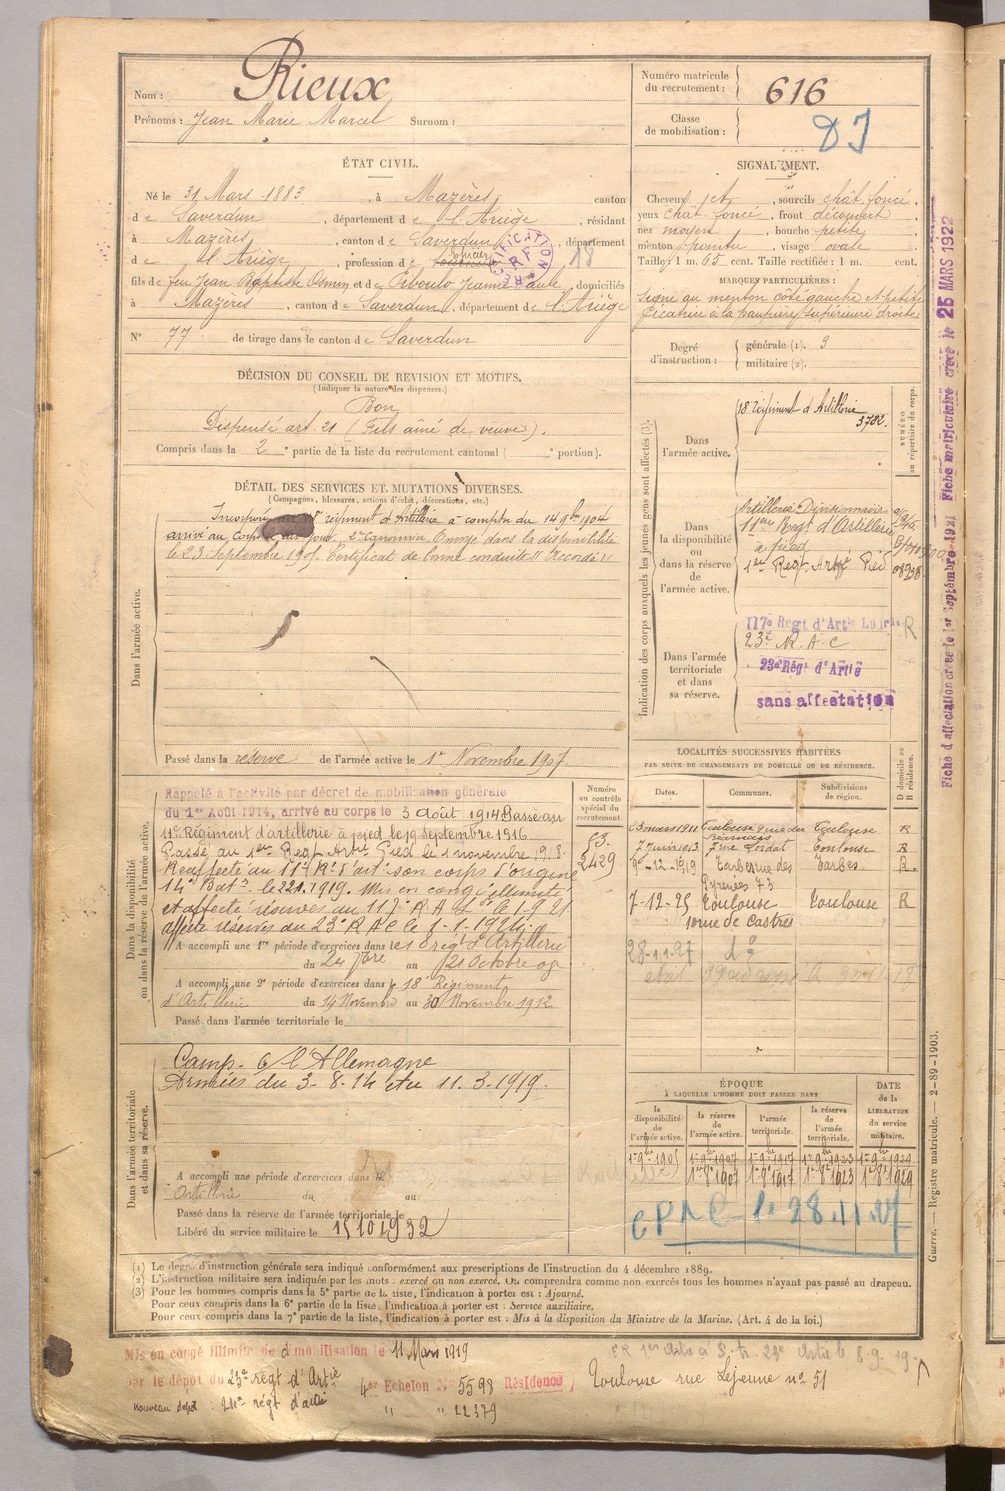 Nom : Rieux
Prénoms : Jean Marie Marcel Surnom :
Numéro matricule du recrutement : 616
Classe de mobilisation :
ÉTAT CIVIL.
Né le 31 Mars 1883, à Mazères, canton
de Saverdun, département de l'Ariège, résidant
à Mazères, canton de Saverdun, département
de l'Ariège, profession de épicier 18
fils de feu Jean Baptiste et de Jeanne Paule, domiciliés
à Mazères, canton de Saverdun, département de l'Ariège
N° 77 de tirage dans le canton de Saverdun
SIGNALEMENT.
Cheveux, sourcils chât. foncé,
yeux chât. foncé, front découvert
nez moyen, bouche petite,
menton pointu, visage ovale
Taille : 1 m. 65 cent. Taille rectifiée : 1 m. cent.
MARQUES PARTICULIÈRES :
Signe au menton côté gauche et petite
cicatrice à la paupière supérieure droite
Degré d'instruction : générale (1). 3
militaire (2).
DÉCISION DU CONSEIL DE REVISION ET MOTIFS.
(Indiquer la nature des dispenses.)
Bon
Dispensé art. 21 (Fils aîné de veuve).
Compris dans la 2e partie de la liste du recrutement cantonal ( e portion).
DÉTAIL DES SERVICES ET MUTATIONS DIVERSES.
(Campagnes, blessures, actions d'éclat, décorations, etc.)
Dans l'armée active.
Incorporé au régiment d'Artillerie à compter du 14 9bre 1904
arrivé au Corps 2e Canonnier Envoyé dans la disponibilité
le 23 Septembre 1905. Certificat de bonne conduite "Accordé"
Passé dans la réserve de l'armée active le 1er Novembre 1907.
Indication des corps auxquels les jeunes gens sont affectés (3).
NUMÉRO au répertoire du corps.
Dans l'armée active.
18 régiment d'Artillerie
3782.
Dans la disponibilité ou dans la réserve de l'armée active.
Artillerie Divisionnaire
11eme Regt d'Artillerie
à pied
1er Regt Artie Pied 08938
Dans l'armée territoriale et dans sa réserve.
117e Régt d'Artie Lourde R
23e R A C
23e Régt d'Artie
sans affectation
Fiche d'affectation créée le 1er Septembre 1921 Fiche matriculaire créée le 25 MARS 1922
Dans la disponibilité ou dans la réserve de l'armée active.
Rappelé à l'activité par décret de mobilisation générale
du 1er Août 1914, arrivé au corps le 3 Août 1914 Passe au
11e Régiment d'artillerie à pied le 19 Septembre 1916
Passé au 1er Regt Artie Pied le 1 novembre 1918
Reaffecté au 11e Rt d'art. son corps d'origine
14e Batie le 22.1.1919. Mis en congé illimité
et affecté réserves au 117e R A L le 1-9-21
affecté réserves au 23e R A C le 1-1-1924
A accompli une 1re période d'exercices dans regt d'Artillerie
du 24 7bre au 21 Octobre 09
A accompli une 2e période d'exercices dans le 18 Régiment
d'Artillerie du 14 Novembre au 30 Novembre 1912
Passé dans l'armée territoriale le
Numéro au contrôle spécial du recrutement
53.
2429
LOCALITÉS SUCCESSIVES HABITÉES
PAR SUITE DE CHANGEMENTS DE DOMICILE OU DE RÉSIDENCE.
Dates. Communes. Subdivisions de région. D domicile ou R résidence.
3 mars 1911 Toulouse 9 rue du Béarnais Toulouse R
7 juin 1913 7 rue Toulouse R
9-12-1919 Tarbes rue des Pyrénées 73 Tarbes R.
7-12-25 Toulouse Toulouse R
10 rue de Castres
28-11-27 do
Dans l'armée territoriale et dans sa réserve.
Camp. c/ l'Allemagne
Armées du 3-8-14 Au 11-3-1919.
A accompli une période d'exercices dans le
Artillerie du au
Passé dans la réserve de l'armée territoriale le
Libéré du service militaire le 15 10 1932
ÉPOQUE
À LAQUELLE L'HOMME DOIT PASSER DANS
la disponibilité de l'armée active. la réserve de l'armée active. l'armée territoriale. la réserve de l'armée territoriale. DATE de la LIBÉRATION du service militaire.
1er 9bre 1905 1er 9bre 1907 1er 9bre 1917 1er 9bre 1923 1er 9bre 1929
1er 8e 1907 1er 8e 1917 1er 8e 1923 1er 8e 1929
le 28.11.27
Guerre. — Registre matricule. — 2-89-1903.
(1) Le degré d'instruction générale sera indiqué conformément aux prescriptions de l'instruction du 4 décembre 1889.
(2) L'instruction militaire sera indiquée par les mots : exercé ou non exercé. On comprendra comme non exercés tous les hommes n'ayant pas passé au drapeau.
(3) Pour les hommes compris dans la 5e partie de la liste, l'indication à porter est : Ajourné.
Pour ceux compris dans la 6e partie de la liste, l'indication à porter est : Service auxiliaire.
Pour ceux compris dans la 7e partie de la liste, l'indication à porter est : Mis à la disposition du Ministre de la Marine. (Art. 4 de la loi.)
Mis en congé illimité de démobilisation le 11 Mars 1919
par le dépôt du 23e régt d'Artie 4er Echelon N° 5598 Résidence Toulouse rue Lejeune n° 51
nouveau dépôt : 24e régt d'artie " " 22379